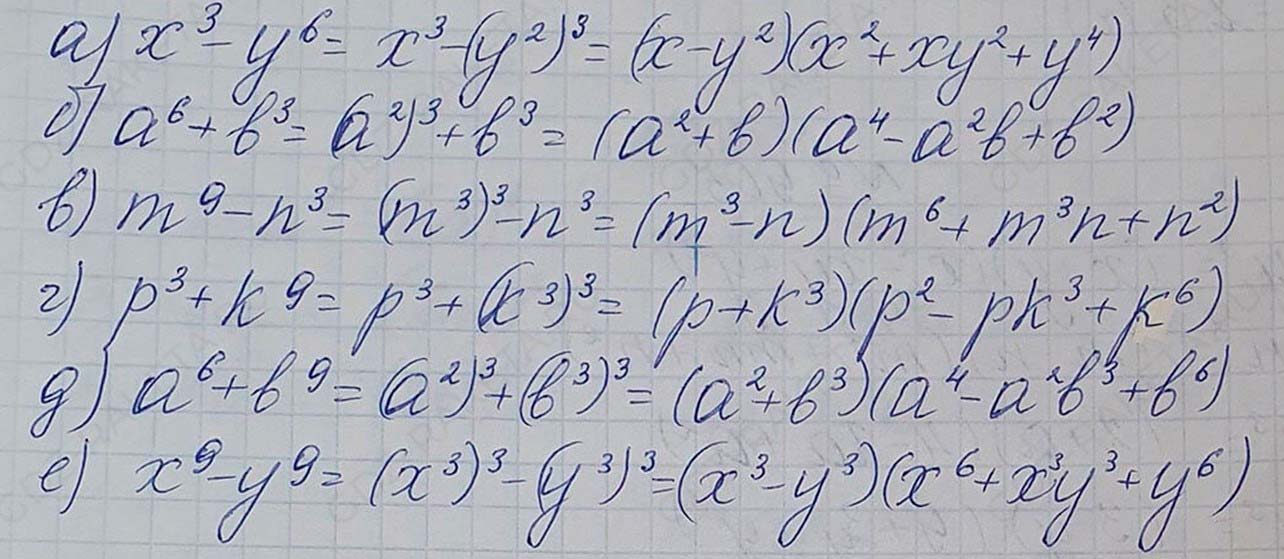 а) x³ - y⁶ = x³ - (y²)³ = (x - y²)(x² + xy² + y⁴)
б) a⁶ + b³ = (a²)³ + b³ = (a² + b)(a⁴ - a²b + b²)
в) m⁹ - n³ = (m³)³ - n³ = (m³ - n)(m⁶ + m³n + n²)
г) p³ + k⁹ = p³ + (k³)³ = (p + k³)(p² - pk³ + k⁶)
д) a⁶ + b⁹ = (a²)³ + (b³)³ = (a² + b³)(a⁴ - a²b³ + b⁶)
е) x⁹ - y⁹ = (x³)³ - (y³)³ = (x³ - y³)(x⁶ + x³y³ + y⁶)